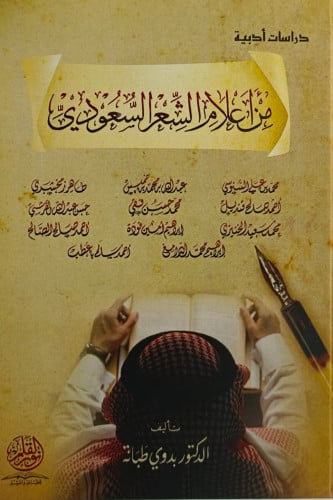 دراسات أدبية
من أعلام الشعر السعودي
طاهر زمخشري عبدالله بن محمد بن خميس محمد بن علي السنوسي
حسن عبدالله القرشي محمد حسن فقي أحمد صالح قنديل
أحمد صالح الصالح إبراهيم أمين فودة محمد سعيد الخنيزي
أحمد سالم باعطب إبراهيم محمد الدامغ
تأليف
الدكتور بدوي طبانة